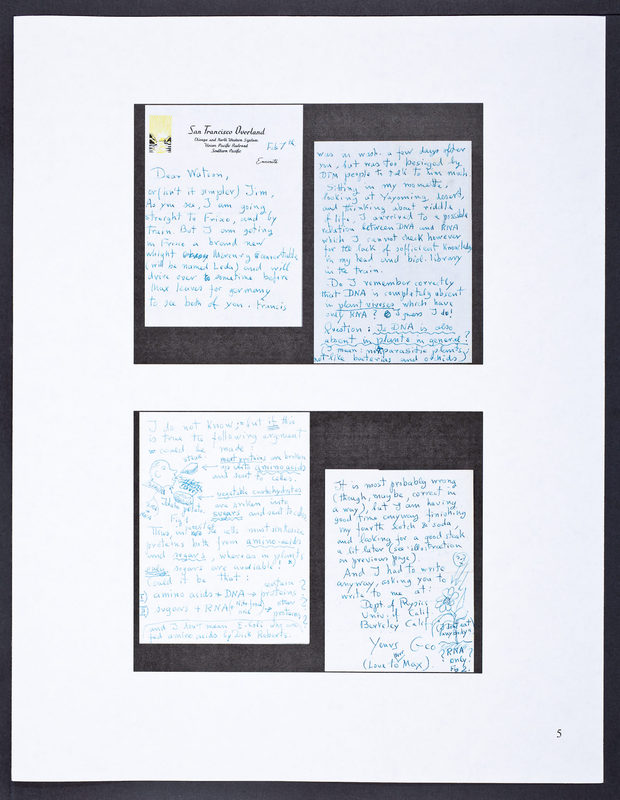 San Francisco Overland
Chicago and North Western System
Union Pacific Railroad
Southern Pacific
Feb 7th
Enroute
Dear Watson,
or (isn't it simpler) Jim,
As you see, I am going
straight to Frisco, and by
train. But I am geting
in Frisco a brand new
whight Mercury convertable
(will be named Leda) and will
drive over to sometime before
Max leaves for germany
to see both of you. Francis
was in wash. a few days after
you, but was too besieged by
DTM people to talk to him much
Sitting in my roomette,
looking at Yayoming desert,
and thinking about riddle
of life, I arrived to a possible
relation between DNA and RNA
which I cannot check however
for the lack of sufficient knowledge
in my head and biol. library
in the train.
Do I remember correctly
that DNA is completely absent
in plant viruses which have
only RNA? I guess I do!
Question: Is DNA is also
absent in plants in general?
(I mean: non parasitic plants,
not like bacterias and orchids)
I do not know; but if this
is true the following argument
could be made
steak
most proteins are broken
up into amino acids
and sent to cells.
vegetable carbohydrates
are broken into
sugars and sent to cells
Idaho potato
Fig 1
Thus, in animals cells must sintesize
proteins both from amino-acids
and sugars, whereas in plants
only sugars are available!
Could it be that:
I) amino acids + DNA → certain proteins ?
II) sugars + RNA → other proteins ?
and I don't mean E. Coli who are
fed amino acids by Dick Roberts.
It is most probably wrong
(though, may be, correct in
a way), but I am having
good time anyway finishing
my fourth scotch & soda,
and looking for a good steak
a bit later (see illustration
on previous page).
And I had to write
anyway, asking you to
write to me at:
Dept. of Physics
Univ. of Calif.
Berkeley Calif
Yours Geo
(Love to Max).
? RNA
only.
Fig 2.
5